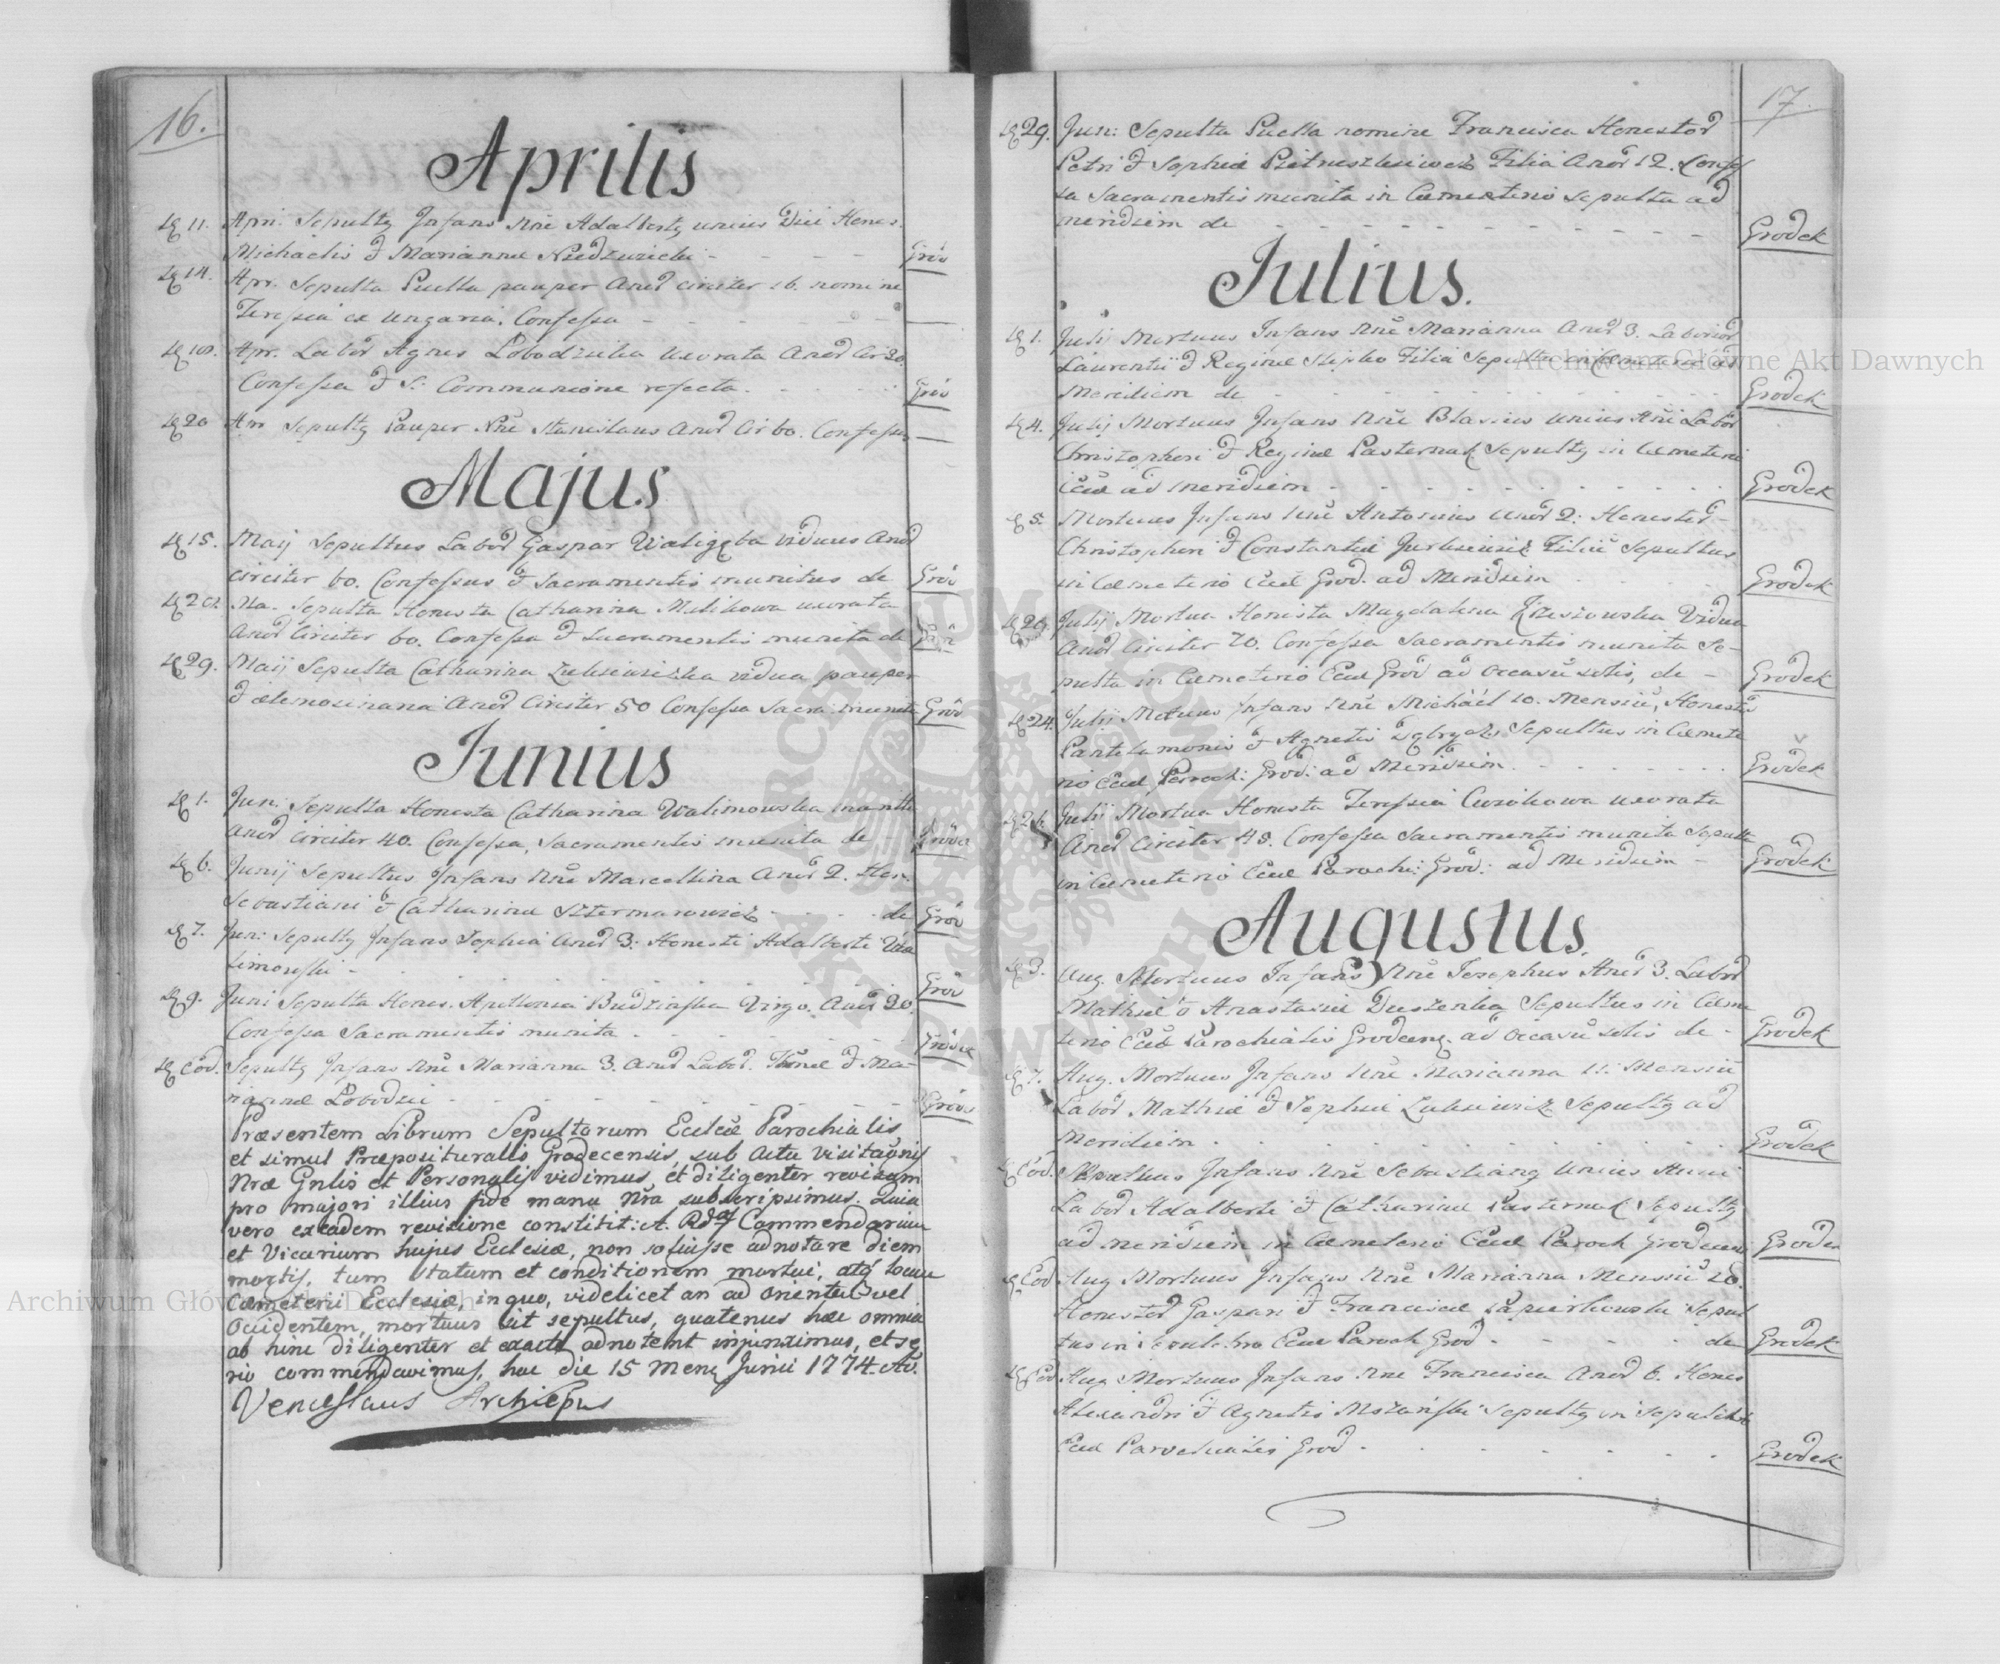 16.
Aprilis
11. Apri. Sepultg Infans Nnē Adalbertg unius Diei Hones.
Michaelis & Marianna Niedzwiecki Grōd
14. Apr. Sepulta Puella pauper Anor circiter 16. nomine
Teresia ex Ungaria. Confessa
Apr. Labor Agnes Lobodzicka uxorata Anor Cir 20.
Confessa & S. Communione refecta. Grōd
20 Apr Sepultg Pauper Nnē Stanislaus Anor Cir 60. Confessus
Majus
15. Maij Sepultus Labor Gaspar viduus Anor
circiter 60. Confessus & Sacramentis munitus de Grōd
Ma. Sepulta Honesta Catharina Milikowa uxorata
Anor Circiter 60. Confessa & Sacramentis munita de
29. Maij Sepulta Catharina vidua pauper
& elemosinaria Anor Circiter 50 Confessa Sacra: munita Grōd
Junius
1. Jun: Sepulta Honesta Catharina Walimowska
Anor circiter 40. Confessa, Sacramentis munita de
6. Junij Sepultus Infans Nnē Marcellina Anor 2. Hon.
Sebastiani & Catharina de Grōd
7. Jun: Sepultg Infans Sophia Anor 3. Honesti Adalberti Wa
limowski Grōd
9. Juni Sepulta Hones. Apollonia Budzinska Virgo. Anor 20.
Confessa Sacramentis munita Grōdek
Eōd. Sepultg Infans Nnē Marianna 3. Anor Labor. & Ma-
riannæ Lobodzic
Præsentem Librum Sepultorum Eccleæ Parochialis
et simul Præposituralis Grodecensis, sub actu visitaõnis
Nræ Gnlis et Personalis vidimus, et diligenter revisum
pro majori illius fide manu Nra subscripsimus. Quia
vero ex eadem revisione constitit: A. Commendarium
et Vicarium hujus Ecclesiæ, non adnotare diem
mortis, tum Statum et conditionem mortui, atq locum
Cæmeterii Ecclesiæ, in quo, videlicet an ad orientem vel
Occidentem, mortuus sit sepultus, quatenus hæc omnia
ab hinc diligenter et exacte adnotent injunximus, et se
rio commendavimus, hac die 15 Mens Junii 1774. Aō.
Venceslaus Archiepus
17.
29. Jun: Sepulta Puella nomine Francisca Honestor
Petri & Sophiæ Filia Anor 12. Confes
sa Sacramentis munita in Cæmeterio Sepulta ad
meridiem de Grodek
Julius.
1. Julij Mortuus Infans Nnē Marianna Anor 3. Laborior
Laurentii & Reginæ Filia Sepulta in Cæmeterio ad
Meridiem de Grodek
4. Julij Mortuus Infans Nnē Blasius unius Ani Labor
Christophori & Reginæ Pasternak Sepultg in Cæmeteri
Eccleæ ad meridiem Grodek
5. Mortuus Infans Nnē Antonius Anor 2: Honestor
Christophori & Constantiæ Filiū Sepultus
in Cæmeterio Eccleæ Grod. ad Meridiem Grodek
Julij Mortua Honesta Magdalena Vidua
Anor Circiter 70. Confessa Sacramentis munita Se-
pulta in Cæmeterio Eccleæ Grod ad Occasū solis, de Grodek
24. Julij Mortuus Infans Nnē Michaël 10. Mensiū, Honestor
Pantelemonis & Agnetis Sepultus in Cæmete
rio Eccleæ Paroch: Grod: ad Meridiem Grodek
Julij Mortua Honesta Teressia uxorata
Anor Circiter 45. Confessa Sacramentis munita Sepulta
in Cæmeterio Eccleæ Parochi: Grod: ad Meridiem Grodek
Augustus.
3. Aug. Mortuus Infans Nnē Josephus Anor 3. Labor
Mathiæ & Anastasiæ Sepultus in Cæme
terio Eccleæ Parochialis ad Occasū solis de Grodek
7. Aug. Mortuus Infans Nnē Marianna 11. Mensiū
Labor Mathiæ & Sophiæ Sepultg ad
Meridiem Grodek
Eōd. Sepultus Infans Nnē Sebastiang Unius Anni
Labor Adalberti & Catharinæ Pasternak Sepultg
ad meridiem in Cæmeterio Eccleæ Paroch Grodecen Grodek
Eōd Aug Mortuus Infans Nnē Marianna Mensiū 20.
Honestor Gaspari & Franciscæ Sepul
tus in Sepulchro Eccleæ Paroch Grod de Grodek
Eōd Aug Mortuus Infans Nnē Francisca Anor 6. Hones
Alexandri & Agnetis Sepultg in Sepulchro
Eccleæ Parochialis Grod Grodek
Archiwum Główne Akt Dawnych
Archiwum Główne Akt Dawnych
ARCHIWUM GŁÓWNE AKT DAWNYCH